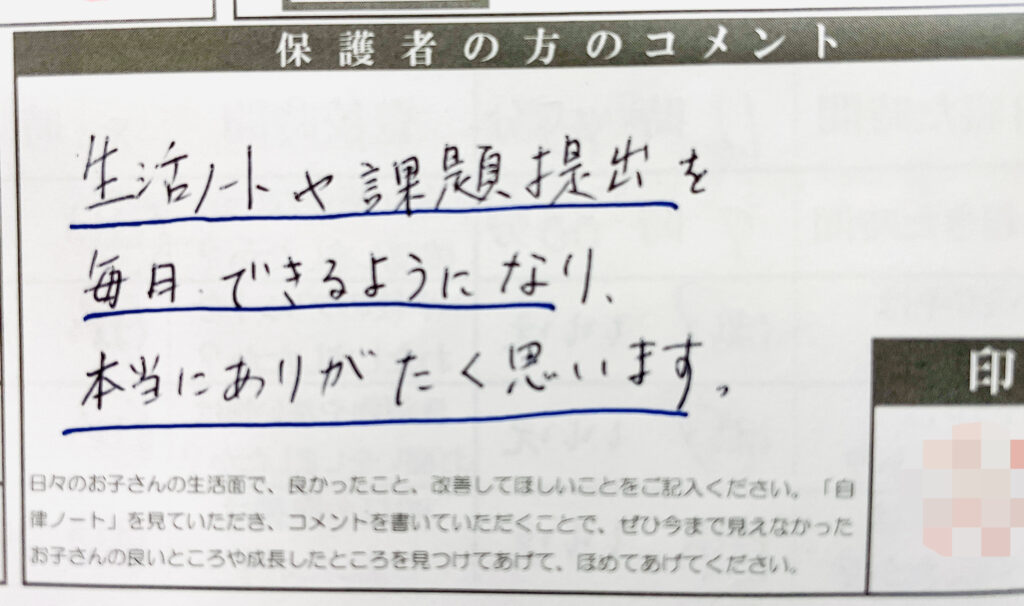 保護者の方のコメント
生活ノートや課題提出を
毎日できるようになり、
本当にありがたく思います。
印
日々のお子さんの生活面で、良かったこと、改善してほしいことをご記入ください。「自
律ノート」を見ていただき、コメントを書いていただくことで、ぜひ今まで見えなかった
お子さんの良いところや成長したところを見つけてあげて、ほめてあげてください。